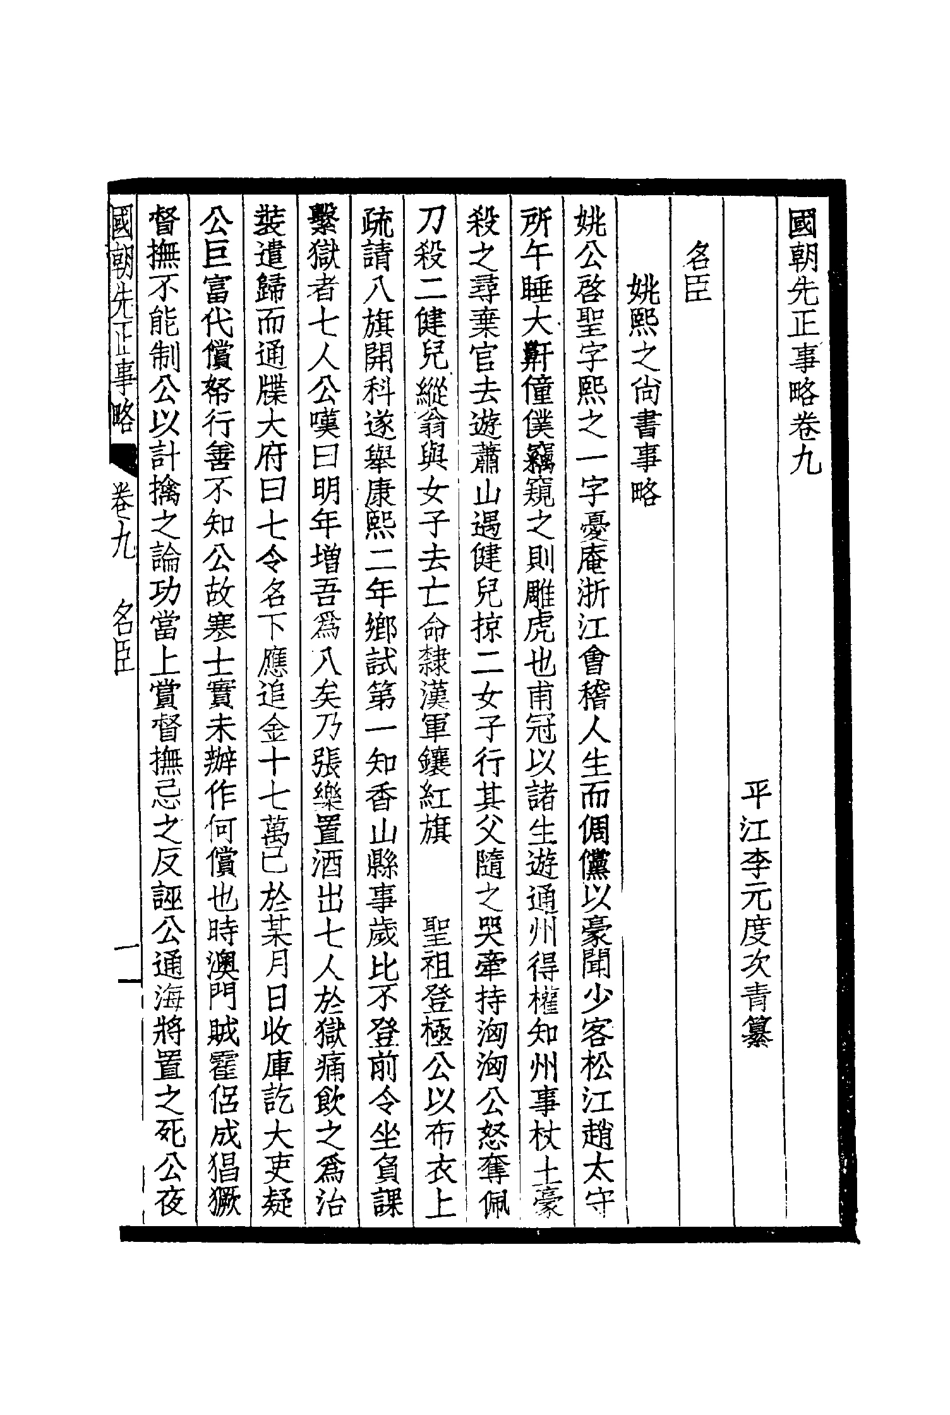 國朝先正事略卷九
平江李元度次青纂
名臣
姚熙之尙書事略
姚公啓聖字熙之一字憂庵浙江會稽人生而倜儻以豪聞少客松江趙太守
所午睡大鼾僮僕竊窺之則雕虎也甫冠以諸生遊通州得權知州事杖土豪
殺之尋棄官去遊蕭山遇健兒掠二女子行其父隨之哭牽持洶洶公怒奪佩
刀殺二健兒縱翁與女子去亡命隸漢軍鑲紅旗　聖祖登極公以布衣上
疏請八旗開科遂舉康熙二年鄉試第一知香山縣事歲比不登前令坐負課
繫獄者七人公嘆曰明年增吾爲八矣乃張樂置酒出七人於獄痛飲之爲治
裝遣歸而通牒大府曰七令名下應追金十七萬已於某月日收庫訖大吏疑
公巨富代償帑行善不知公故寒士實未辦作何償也時澳門賊霍侶成猖獗
督撫不能制公以計擒之論功當上賞督撫忌之反誣公通海將置之死公夜
國朝先正事略　卷九　名臣　一